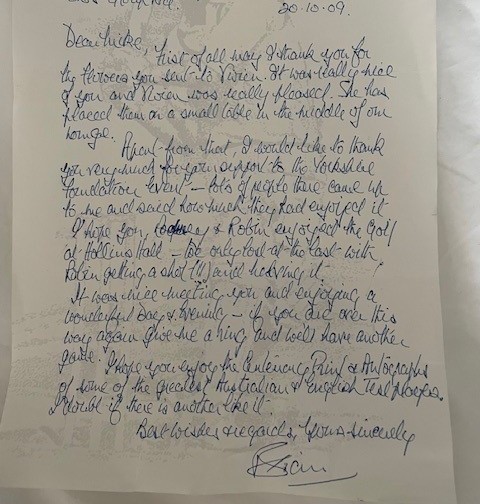 20.10.09.
Dear Mike, First of all may I thank you for
the flowers you sent to Vivien. It was really nice
of you and Vivien was really pleased. She has
placed them on a small table in the middle of our
lounge.
Apart from that, I would like to thank
you very much for your support to the Yorkshire
Foundation Event – lots of people there came up
to me and said how much they had enjoyed it
I hope you, & Robin enjoyed the Golf
at Hollins Hall – we only lost at the last with
Robin getting a shot (!!) and halving it
It was nice meeting you and enjoying a
wonderful day & evening – if you are over this
way again give me a ring and we'll have another
game. I hope you enjoy the Centenary Print & Autographs
of some of the greatest Australian & English Test players.
I doubt if there is another like it.
Best wishes & regards, Yours Sincerely